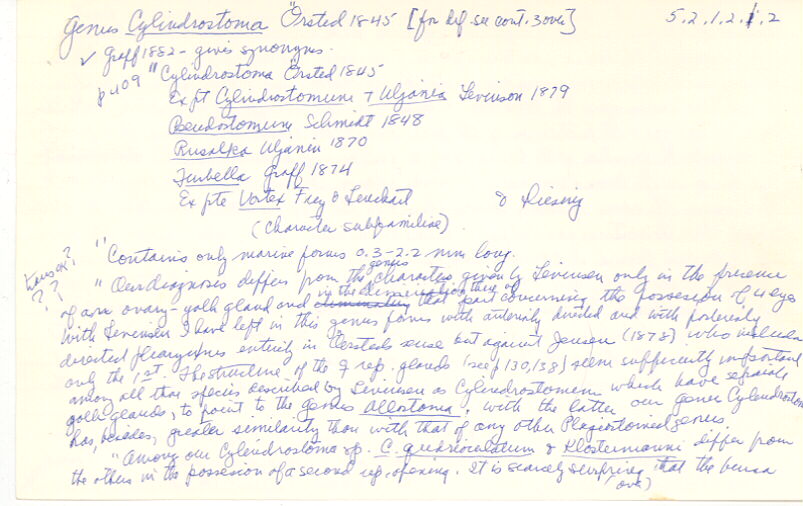 Genus Cylindrostoma Örsted 1845 [for def. see cont. 3 over] 5.2.1.2.1.2
✓ Graff 1882 - gives synonyms.
p 409 "Cylindrostoma Örsted 1845
Ex pt Cylindrostomum + Uljania Levinson 1879
Pseudostomum Schmidt 1848
Rusalka Uljanin 1870
Turbella Graff 1874
Ex pte Vortex Frey & Leuckart & Diesing
(Character subfamiliae)
"Contains only marine forms 0.3-2.2 mm long.
"Our diagnosis differs from the genus characters given by Levinsen only in the presence
of an ovary-yolk gland and in the elimination there of that part concerning the possession of 4 eyes
with Levinsen I have left in this genus forms with anteriorly directed and with posteriorly
directed pharynxes entirely in Oersted's sense but against Jensen (1878) who includes
only the 1st. The structure of the ♀ rep. glands (see p 130, 138) seem sufficiently important
among all those species described by Levinsen as Cylindrostomum which have separate
yolk glands, to point to the genus Allostoma, with the latter our genus Cylindrostoma
has, besides, greater similarity than with that of any other Plagiostomid genus.
"Among our Cylindrostoma sp. C. quadrioculatum & Klostermanni differ from
the others in the possession of a second rep. opening. It is scarcely surprising that the bursa
(over)